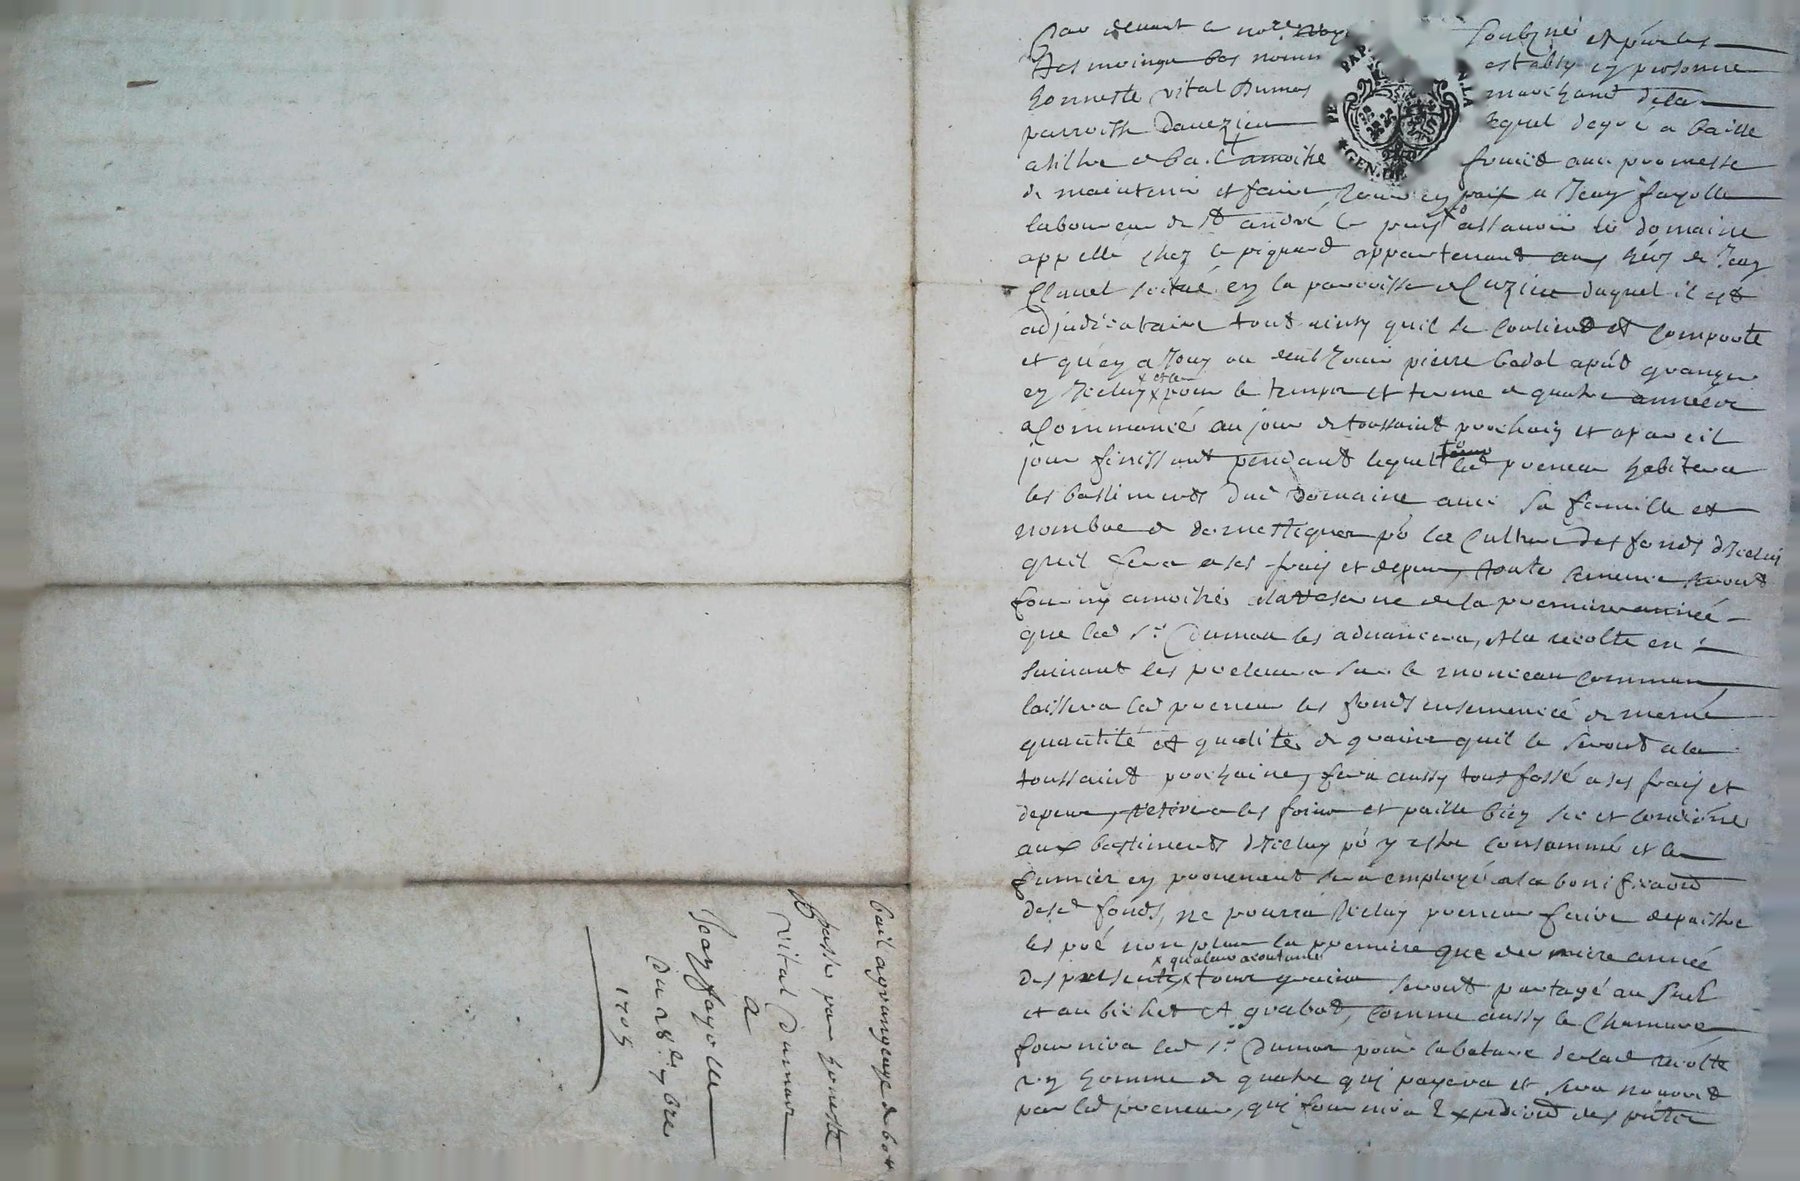 Par devant le no.re roy soubzné et pnts les
tesmoings bas nommés establý en personne
honneste vital Dumas marchand de la
parroisse Davezieu lequel degré a baillé
a tiltre de bail a moitié fruict avec promesse
de maintenir et faire jouir en paix a Jean fayolle
laboureur de St andré assavoir le domaine
appellé chez le piquard appartenant aux hérs de Jean
Clauel scitué en la parroisse duquel il est
adjudicataire tout ainsy quil se contient et comporte
et quen a jouy ou deub jouir pierre granger
en Icelluy pour le temps et terme de quatre années
a commancé au jour de toussaint prochain et a pareil
jour finissant pendant lequel led preneur habitera
les bastiments dud Domaine avec sa famille et
nombre de domestiques po la Culture des fonds dicelui
quil fera a ses frais et depens, toute semence seront
fourny a moitié a la reserve de la premiere année
que led Sr. Dumas les advancera, et a la recolte en
suivant les prelevera sur le monceau commun,
laissera led preneur les fonds ensemencé de meme
quantité et qualité de grains quil le seront a la
toussaint prochaine, fera aussy tous fossé a ses frais et
depens, retirera les foins et paille bien sec et conditioné
aux bastiments dicelluy po y estre consommé et le
fumier en provenant sera employé a la bonification
desd fonds, ne pourra Icelluy preneur faire depaistre
les pré non plus la premiere que derniere année
des presentes tous grains seront partagé au suel
et au bichet et grabot, comme aussy le Chenevé
fournira led Sr. Dumas pour la bature de lad recolte
un homme de quatre qui payera et sera nourrit
par led preneur, qui fournira Expedition des pntes
bail a grangeage de
passé par honeste
vital Dumas
A
Jean fayolle
Du 28e 7bre
1705